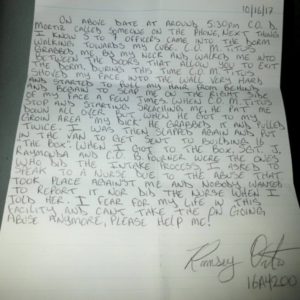 10/16/17
ON ABOVE DATE AT AROUND 5:30PM C.O. D.
MORTIR CALLED SOMEONE ON THE PHONE, NEXT THING
I KNOW 5 TO OFFICERS CAME INTO THE DORM
WALKING TOWARDS MY CUBE. C.O. M. TITUS
GRABBED ME BY MY NECK AND WALKED ME INTO
BETWEEN THE DOORS THAT ALLOW YOU TO EXIT
THE DORM. DURING THIS TIME C.O. M. TITUS
SHOVED MY FACE INTO THE WALL VERY HARD
AND STARTED TO PULL MY HAIR FROM BEHIND
AND BEGAIN TO SLAP ME ON THE RIGHT SIDE
OF MY FACE A FEW TIMES. WHEN C.O. M. TITUS
STOP AND STARTED SEARCHING ME, HE PAT ME
DOWN ALL OVER BUT WHEN HE GOT TO MY
GROIN AREA (MY DICK) HE GRABBED IT AND PULLED
TWICE. I WAS THEN SLAPPED AGAIN AND PUT
IN THE VAN TO GET SENT TO BUILDING 16
"THE BOX". WHEN I GOT TO THE BOX, SGT. J.
RAYMONDA AND C.O. B. WERE THE ONES
WHO DID THE INTAKE PROCESS. I ASKED TO
SPEAK TO A NURSE DUE TO THE ABUSE THAT
TOOK PLACE AGAINST ME AND NOBODY WANTED
TO REPORT IT NOR DID THE NURSE WHEN I
TOLD HER. I FEAR FOR MY LIFE IN THIS
FACILITY AND CAN'T TAKE THE ON GOING
ABUSE ANYMORE, PLEASE HELP ME!
Ramsey
16A4200